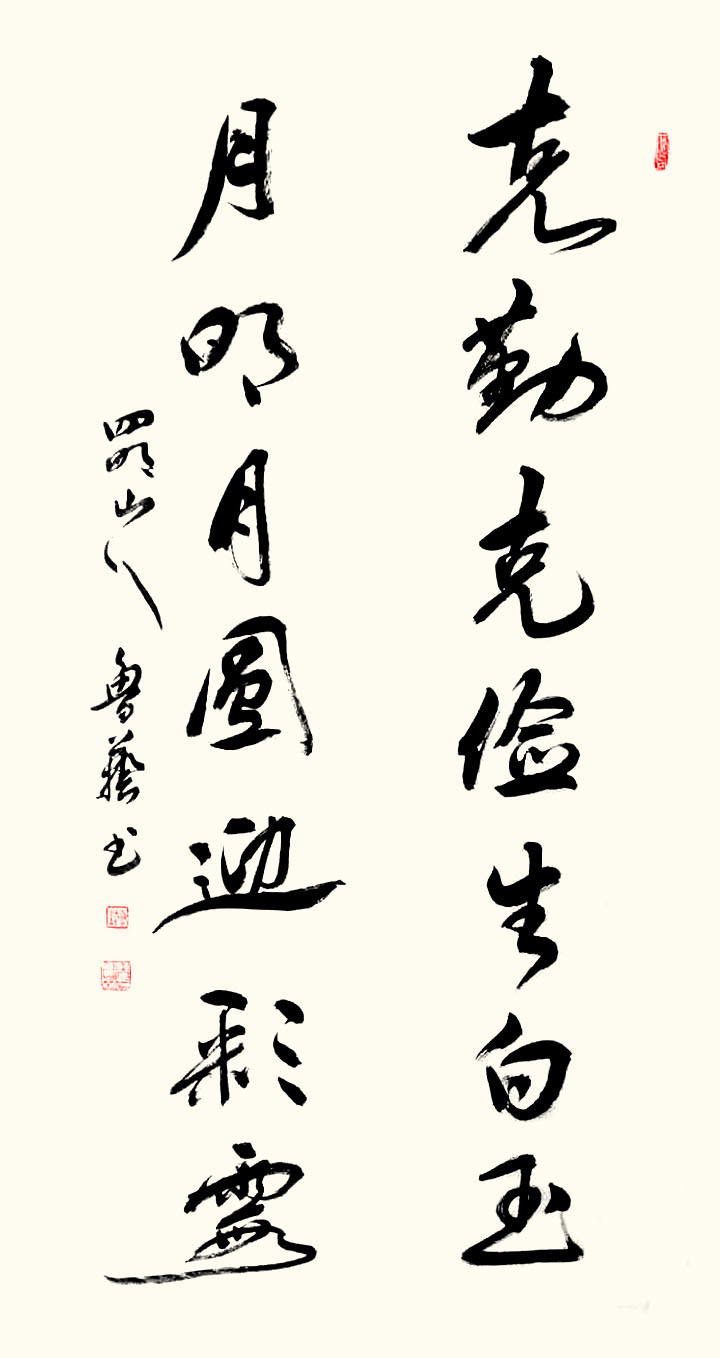 克勤克俭生白玉
月明月圆迎彩霞
四明山人 鲁藝书